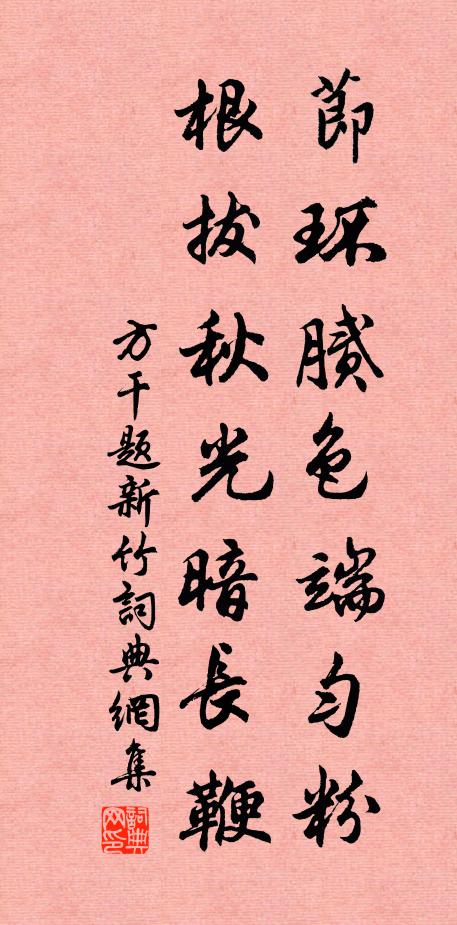 節環膩色端勻粉
根拔秋光暗長鞭
方干題新竹詞典網集
詞典网印